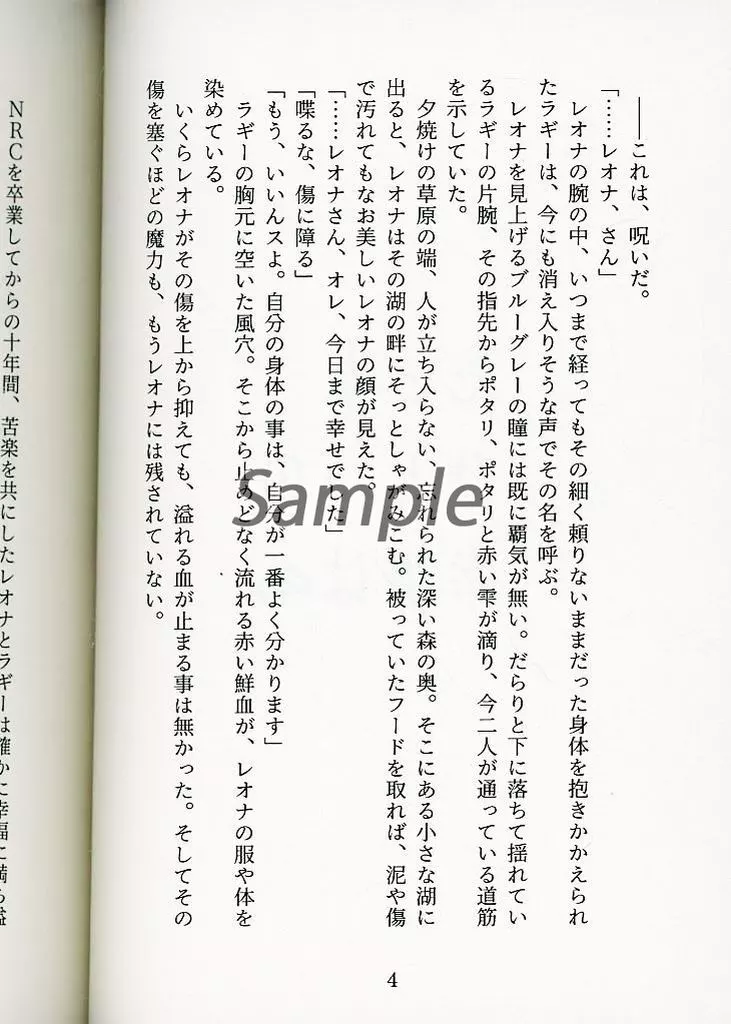 ――これは、呪いだ。
「……レオナ、さん」
レオナの腕の中、いつまで経ってもその細く頼りないままだった身体を抱きかかえられ
たラギーは、今にも消え入りそうな声でその名を呼ぶ。
レオナを見上げるブルーグレーの瞳には既に覇気が無い。だらりと下に落ちて揺れてい
るラギーの片腕、その指先からポタリ、ポタリと赤い雫が滴り、今二人が通っている道筋
を示していた。
夕焼けの草原の端、人が立ち入らない、忘れられた深い森の奥。そこにある小さな湖に
出ると、レオナはその湖の畔にそっとしゃがみこむ。被っていたフードを取れば、泥や傷
で汚れてもなお美しいレオナの顔が見えた。
「……レオナさん、オレ、今日まで幸せでした」
「喋るな、傷に障る」
「もう、いいんスよ。自分の身体の事は、自分が一番よく分かります」
ラギーの胸元に空いた風穴。そこから止めどなく流れる赤い鮮血が、レオナの服や体を
染めている。
いくらレオナがその傷を上から抑えても、溢れる血が止まる事は無かった。そしてその
傷を塞ぐほどの魔力も、もうレオナには残されていない。
NRCを卒業してからの十年間、苦楽を共にしたレオナとラギーは確かに幸福に満ち溢
Sample
4